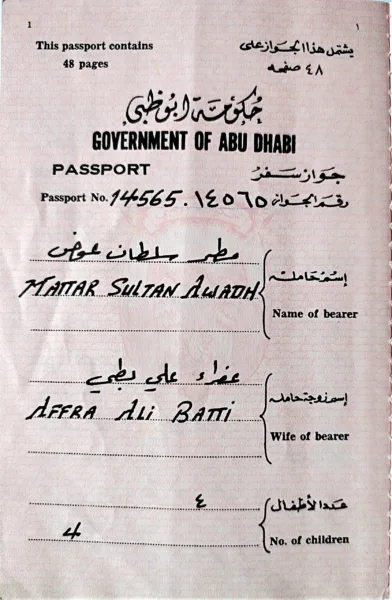 1 ١
This passport contains يشتمل هذا الجواز على
48 pages ٤٨ صفحه
حكومة ابوظبي
GOVERNMENT OF ABU DHABI
PASSPORT جواز سفر
Passport No. 14565 . ١٤٥٦٥ رقم الجواز
مطر سلطان عوض
إسم حامله
MATTAR SULTAN AWADH
Name of bearer
عفراء علي بطي
إسم زوجة حامله
AFFRA ALI BATTI
Wife of bearer
٤ عدد الأطفال
4 No. of children